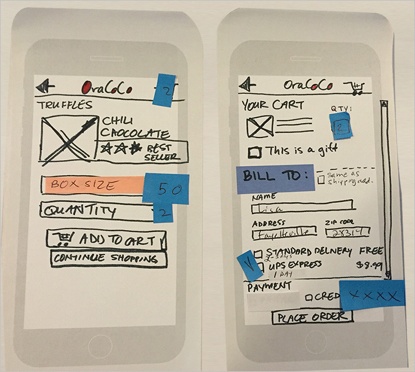 OraCoCo 2
TRUFFLES
CHILI
CHOCOLATE
BEST
SELLER
BOX SIZE 50
QUANTITY 2
ADD TO CART
CONTINUE SHOPPING
OraCoCo
YOUR CART QTY:
This is a gift
BILL TO: Same as
NAME
Lisa
ADDRESS ZIP CODE
Fayetteville 28314
STANDARD DELIVERY FREE
UPS EXPRESS $8.99
1 DAY
PAYMENT
CRED XXXX
PLACE ORDER